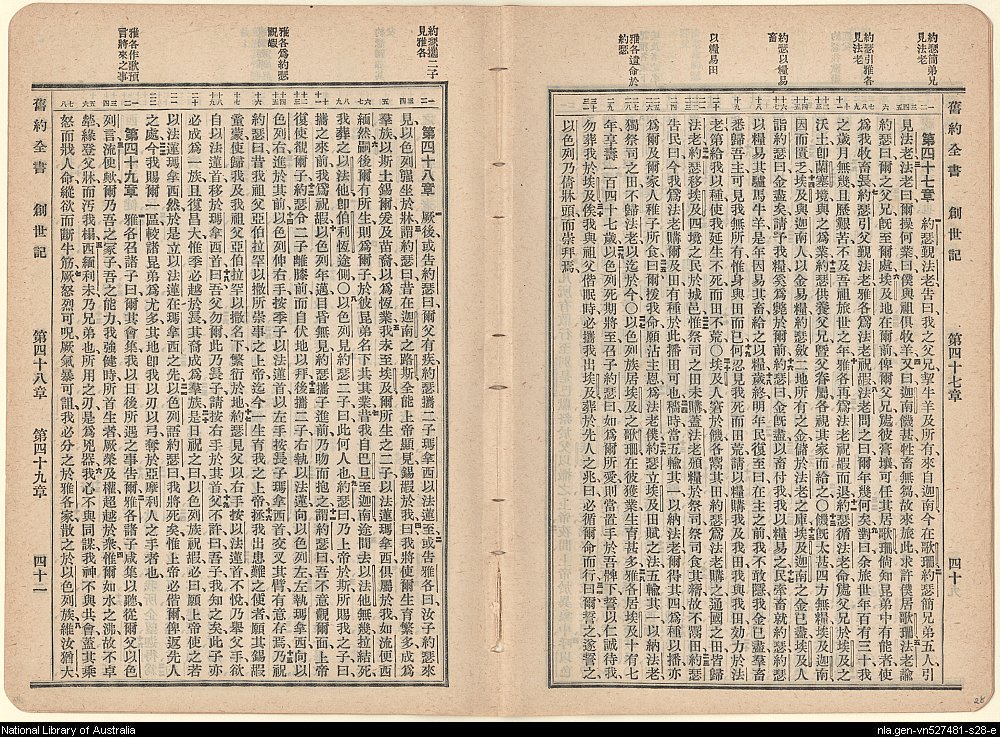 約瑟簡弟兄
見法老
約瑟引雅各
見法老
約瑟以糧易
畜
以糧易田
雅各遺命於
約瑟
舊約全書 創世記 第四十七章
第四十七章 約瑟覲法老告曰我之父兄挈牛羊及所有來自迦南今在歌珊約瑟簡兄弟五人引
見法老法老曰爾操何業曰僕與祖俱牧羊又曰迦南饑甚牲畜無芻故來旅此求許僕居歌珊法老諭
約瑟曰爾之父兄旣至爾處埃及地在爾前俾爾父兄處彼膏壤可任其居歌珊倘知昆弟中有能者使
爲我牧畜長約瑟引父覲法老雅各爲法老祝嘏法老問之曰爾年幾何矣對曰余旅世年百有三十我
之歲月無幾且歷艱苦不及吾祖旅世之年雅各再爲法老祝嘏而退約瑟循法老命處父兄於埃及
沃土卽蘭塞境與之爲業約瑟供養父兄曁父眷屬各視其家而給之〇饑旣太甚四方無糧埃及迦南
因而匱乏埃及與迦南人以金易糧約瑟斂二地所有之金儲於法老之庫埃及迦南之金已盡埃及人
詣約瑟曰金盡矣請予我糧奚爲斃於爾前約瑟曰金旣盡以畜付我我以糧易之民牽畜就約瑟約瑟
以糧易其驢馬牛羊是年因易其畜給之以糧歲終明年民復至曰在主之前我不敢隱我金已盡羣畜
悉歸吾主可見我無所有惟身與田而已何忍見我死而田荒請以糧購我及我田効力於法
老第給我以種使我延生不死而田不荒〇埃及人窘於饑各鬻其田約瑟爲法老購之通國之田皆歸
法老埃及四境之民於城邑惟祭司之田未購蓋法老頒糧於祭司祭司食其糈故不鬻田約瑟
告民曰今我爲法老購爾及田有種於此播田可也穡時當五輸其一以納法老爾得其四爲種以播亦
爲爾及爾家人稚子所食曰爾援我命願沾主恩爲法老僕約瑟立埃及田賦之法五輸其一以納法老
獨祭司之田不歸法老以迄於今〇以色列族居埃及之歌珊在彼獲業生育甚多雅各居埃及十有七
年享壽一百四十七歲以色列死期將至召子約瑟曰我如爾所愛則當置手於吾髀下誓以仁誠待我
勿葬我於埃及俟我與祖父偕眠時必攜我出埃及葬於先人之兆曰必循爾命而行曰爾誓之遂誓之
以色列乃倚牀頭而崇拜焉
約瑟攜二子
見雅各
雅各爲約瑟
觀嘏
雅各作歌預
言將來之事
第四十八章 厥後或告約瑟曰爾父有疾約瑟攜二子瑪拿西以法蓮至或告雅各曰汝子約瑟來
見以色列强坐於牀謂約瑟曰昔在迦南之路斯全能上帝顯見錫嘏於我曰我將使爾生育繁多成爲
羣族以斯土錫爾及苗裔以爲恆業我未至埃及爾所生之二子以法蓮瑪拿西俱屬於我如流便西
緬然嗣後爾有所生則爲爾子於彼昆弟名下共其業昔我自巴旦至迦南途間去以法他無幾拉結死
我葬之以法他卽伯利恆途側〇以色列見約瑟二子曰此何人也約瑟曰乃上帝於斯所賜我之子曰
攜之來前我爲祝嘏以色列年邁目昏無見約瑟攜子進前乃吻而抱之謂約瑟曰吾不意覿爾面上帝
復使我覩爾子約瑟令二子離膝前而自伏地以拜後攜二子右執以法蓮向以色列左左執瑪拿西向以
色列右進於其前以色列伸右手按季子以法蓮首以左手按長子瑪拿西首交叉其臂有意存焉乃祝
約瑟曰昔我祖父亞伯拉罕以撒所崇事之上帝迄今一生育我之上帝拯我出患難之使者願其錫嘏
童蒙使歸我及我祖父亞伯拉罕以撒名下繁衍於地約瑟見父以右手按以法蓮首不悅乃舉父手欲
自以法蓮首移於瑪拿西首曰吾父勿爾此乃長子請按右手於其首父不許曰吾子我知之矣此子亦
必成爲一族且復昌大惟季必越於長其裔成爲羣族是日祝之曰以色列族祝嘏必曰願上帝使之若
以法蓮瑪拿西然於是立以法蓮在瑪拿西之先以色列語約瑟曰我將死矣惟上帝必偕爾俾返先人
之處今我賜爾一區較諸昆弟爲尤多其地卽我以刃以弓奪於亞摩利人之手者也
第四十九章 雅各召諸子曰爾其會集我以日後所遇之事告爾雅各諸子咸集以聽從爾父以色
列言流便歟爾乃吾之冢子吾之能力我强健時所首生者厥榮及權超越於衆惟爾如水之沸故不卓
犖緣登父牀而汚我榻西緬利未乃兄弟也所用之刃是爲兇器我心不與同謀我神不與共會蓋其乘
怒而戕人命縱欲而斷牛筋厥怒烈可咒厥氣暴可詛我必分之於雅各家散之於以色列族維汝猶大
舊約全書 創世記 第四十八章 第四十九章 四十一
National Library of Australia
nla.gen-vn527481-s28-e